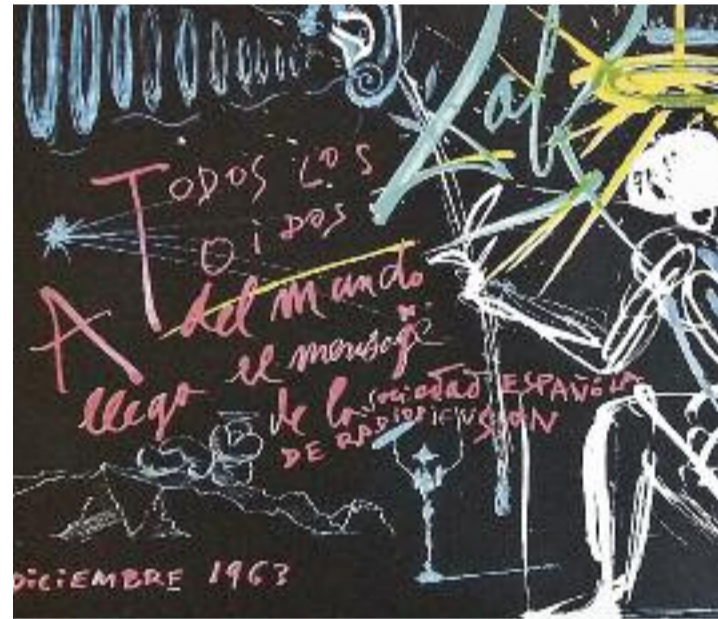 A TODOS LOS
OIDOS
del mundo
llega el mensage
de la Sociedad ESPAÑOLA
DE RADIODIFUSION
DICIEMBRE 1963